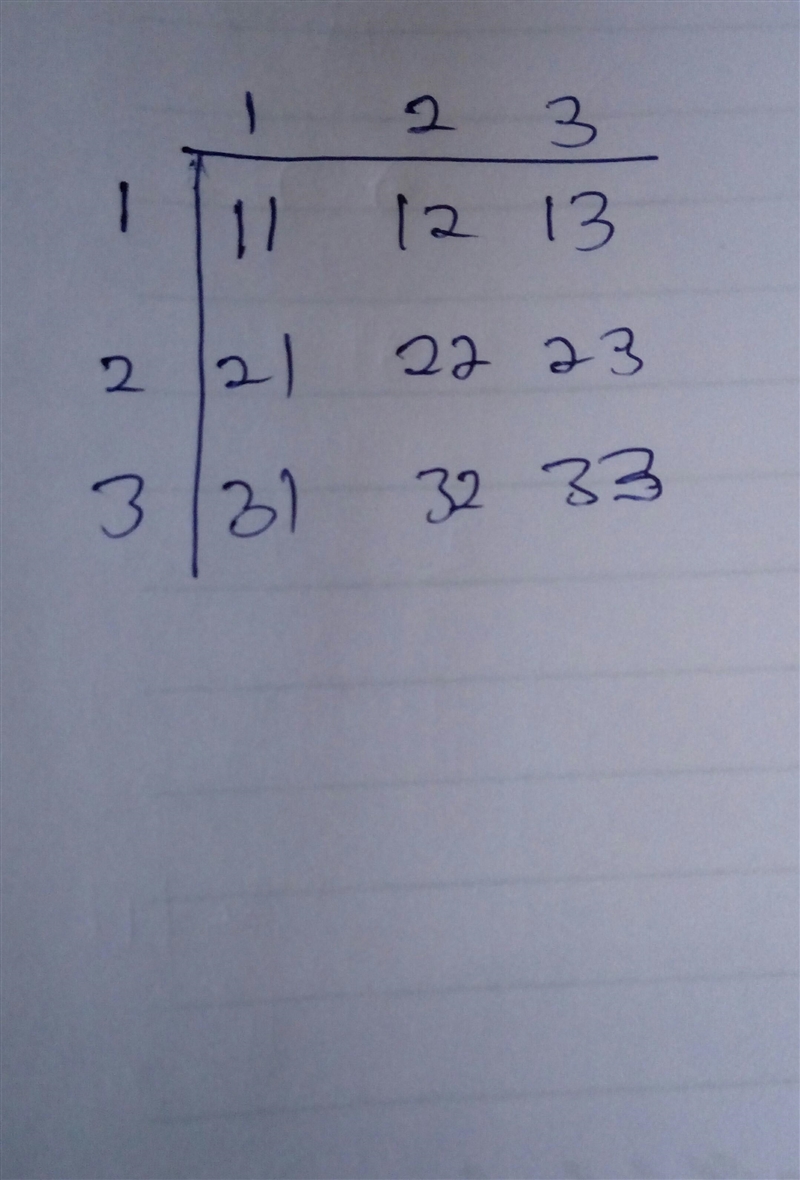 1 2 3
1 11 12 13
2 21 22 23
3 31 32 33